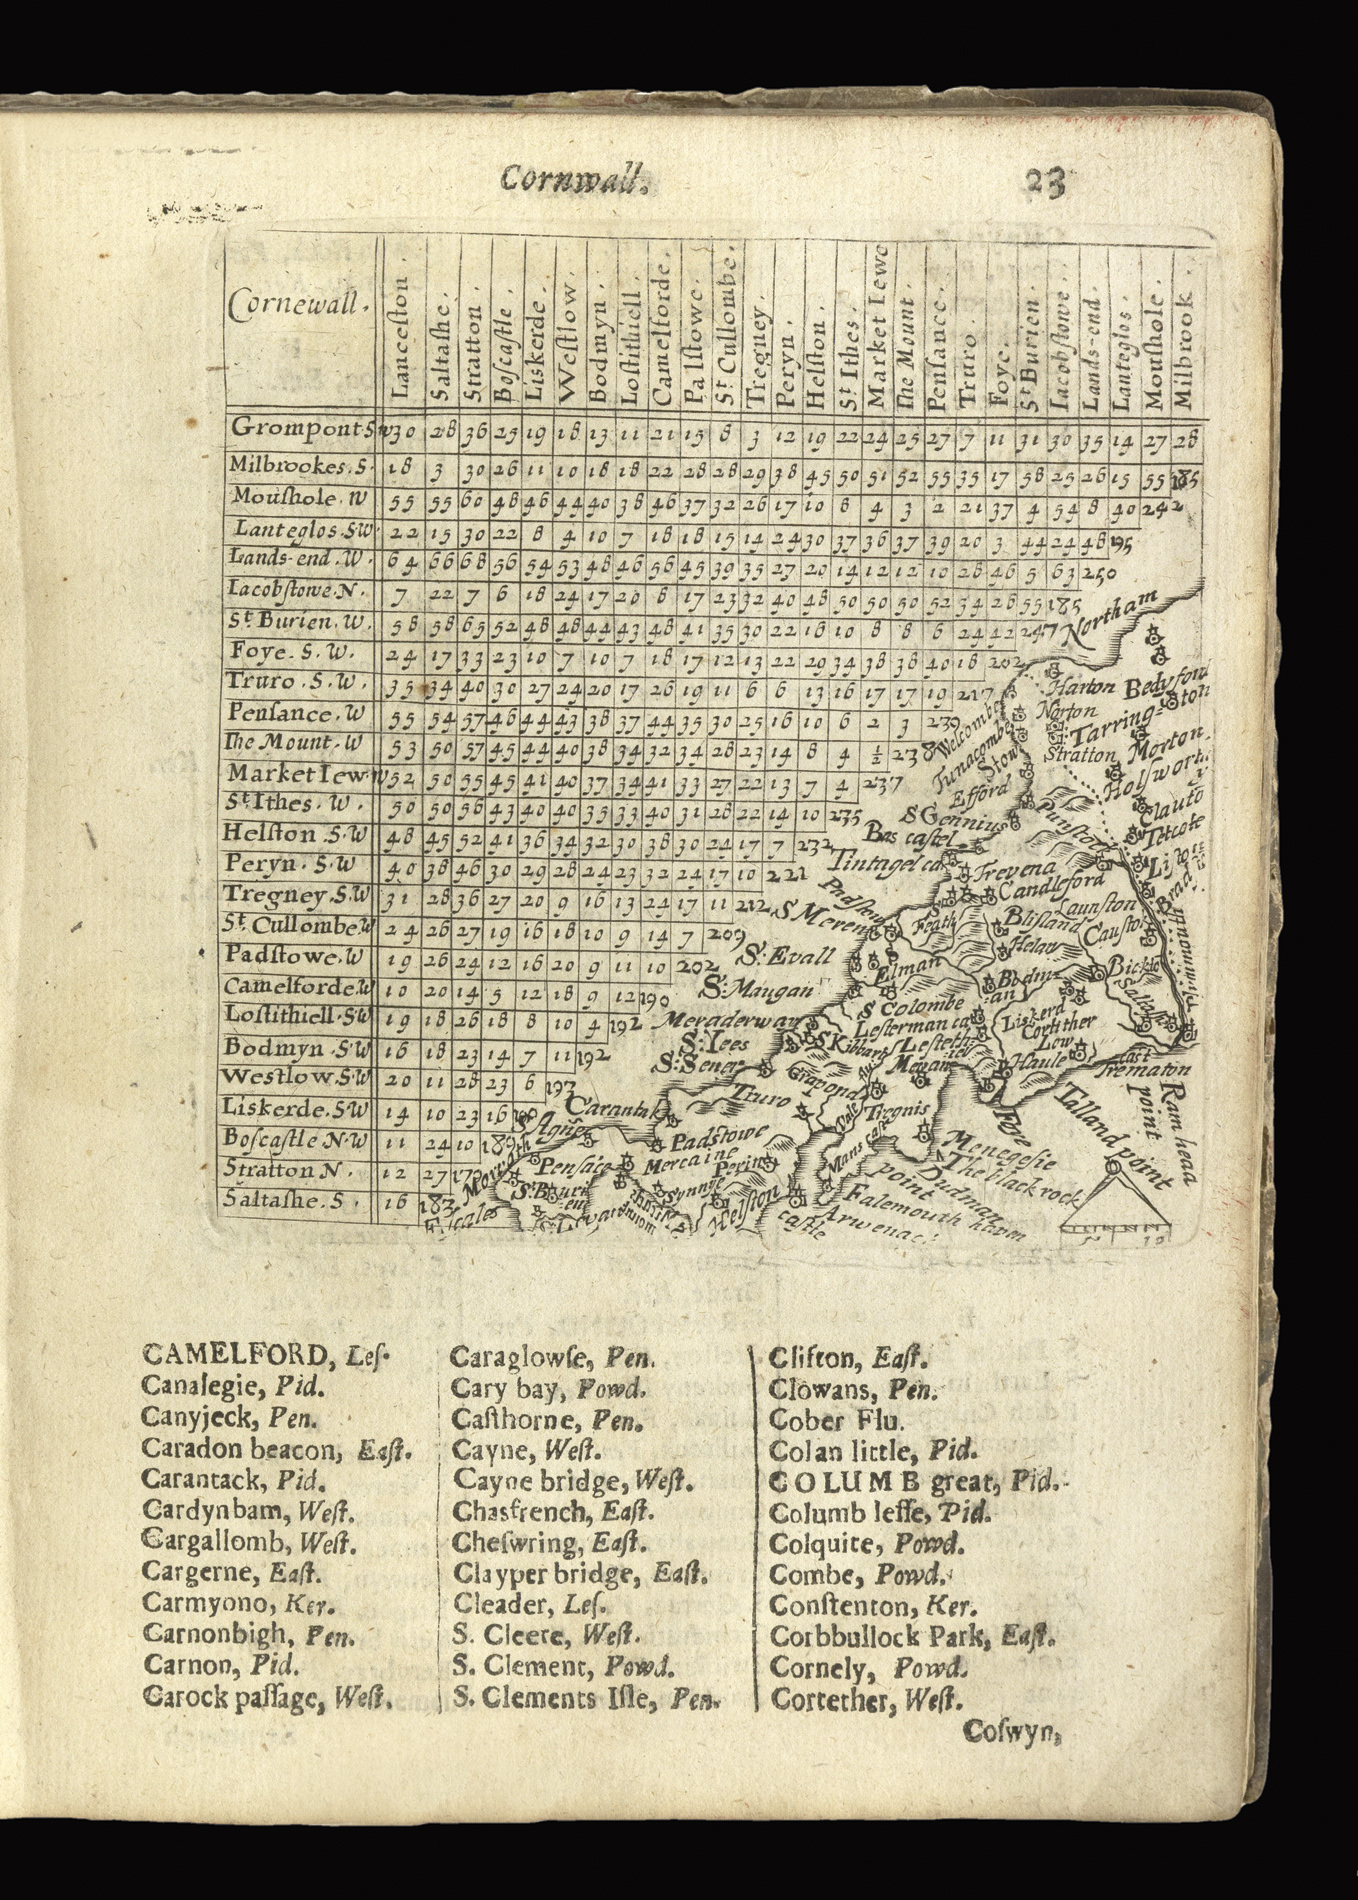 Cornwall.
23
Cornewall.
Lanceston.
Saltashe.
Stratton.
Boscastle.
Liskerde.
Westlow.
Bodmyn.
Lostithiell.
Camelforde.
Padstowe.
St Cullombe.
Tregney.
Peryn.
Helston.
St Ithes.
Market Iewe
The Mount.
Pensance.
Truro.
Foye.
St Burien.
Iacobstowe.
Lands-end.
Lanteglos.
Moushole.
Milbrook.
Grompont S W 30 28 36 25 19 18 13 11 21 15 8 3 12 19 22 24 25 27 7 11 31 30 35 14 27 28
Milbrookes. S. 18 3 30 26 11 10 18 18 22 28 28 29 38 45 50 51 52 55 35 17 58 25 26 15 55 185
Moushole. W 55 55 60 48 46 44 40 38 46 37 32 26 17 10 8 4 3 2 21 37 4 54 8 40 242
Lanteglos. S W. 22 15 30 22 8 4 10 7 18 18 15 14 24 30 37 36 37 39 20 3 44 24 48 195
Lands-end. W. 64 66 68 56 54 53 48 46 56 45 39 35 27 20 14 12 12 10 28 46 5 63 250
Iacobstowe. N. 7 22 7 6 18 24 17 20 8 17 23 32 40 48 50 50 50 52 34 26 55 185
St. Burien. W. 58 58 65 52 48 48 44 43 48 41 35 30 22 16 10 8 8 6 24 42 247
Foye. S. W. 24 17 33 23 10 7 10 7 18 17 12 13 22 29 34 38 38 40 18 202
Truro. S. W. 35 34 40 30 27 24 20 17 26 19 11 6 6 13 16 17 17 19 217
Pensance. W 55 54 57 46 44 43 38 37 44 35 30 25 16 10 6 2 3 239
The Mount. W 53 50 57 45 44 40 38 34 32 34 28 23 14 8 4 ½ 238
Market Iew. W 52 50 55 45 41 40 37 34 41 33 27 22 13 7 4 237
St. Ithes. W. 50 50 56 43 40 40 35 33 40 31 28 22 14 10 235
Helston. S. W 48 45 52 41 36 34 32 30 38 30 24 17 7 232
Peryn. S. W 40 38 46 30 29 28 24 23 32 24 17 10 221
Tregney. S. W 31 28 36 27 20 9 16 13 24 17 11 212
St. Cullombe. W 24 26 27 19 16 18 10 9 14 7 209
Padstowe. W 19 26 24 12 16 20 9 11 10 202
Camelforde. W 10 20 14 5 12 18 9 12 190
Lostithiell. S W 19 18 26 18 8 10 4 192
Bodmyn. S W 16 18 23 14 7 11 192
Westlow. S. W 20 11 28 23 6 193
Liskerde. S W 14 10 23 16
Boscastle N. W 11 24 10 189
Stratton N. 12 27 173
Saltashe. S. 16 183
Northam
Harton
Bedyford
Norton
Tarring-
ton
Welcombe
Tunacombe
Stow
Stratton
Morton
Holsworth
Efford
Clauto
Tetcote
S Gennius
Punstock
Bas castel
Tintagel ca
Trevena
Candleford
Padstow
S Meren
Feath
Blisland
Launston
Causton
Helan
S. Evall
Elman
Bodmi
an
S. Maugan
S Colombe
Liskerd
Cortither
Low
Meraderwan
Lesterman ca
S. Iees
S Kibburt
S. Sener
Haule
Trematon
Grapond
Truro
Carantak
Tregnis
Foye
Talland point
Ram head
point
S Agnes
Padstowe
Mercaine
Perin
Mans castle
Menegesie
The black rock
Pensāce
Dudman
point
S. Buri
en
Helston
Falemouth haven
castle
Arwenac
CAMELFORD, Leſ.
Canalegie, Pid.
Canyjeck, Pen.
Caradon beacon, Eaſt.
Carantack, Pid.
Cardynbam, Weſt.
Cargallomb, Weſt.
Cargerne, Eaſt.
Carmyono, Ker.
Carnonbigh, Pen.
Carnon, Pid.
Carock paſſage, Weſt.
Caraglowſe, Pen.
Cary bay, Powd.
Caſthorne, Pen.
Cayne, Weſt.
Cayne bridge, Weſt.
Chasfrench, Eaſt.
Cheſwring, Eaſt.
Clayper bridge, Eaſt.
Cleader, Leſ.
S. Cleere, Weſt.
S. Clement, Powd.
S. Clements Iſle, Pen.
Clifton, Eaſt.
Clowans, Pen.
Cober Flu.
Colan little, Pid.
COLUMB great, Pid.
Columb leſſe, Pid.
Colquite, Powd.
Combe, Powd.
Conſtenton, Ker.
Corbbullock Park, Eaſt.
Cornely, Powd.
Cortether, Weſt.
Coſwyn,